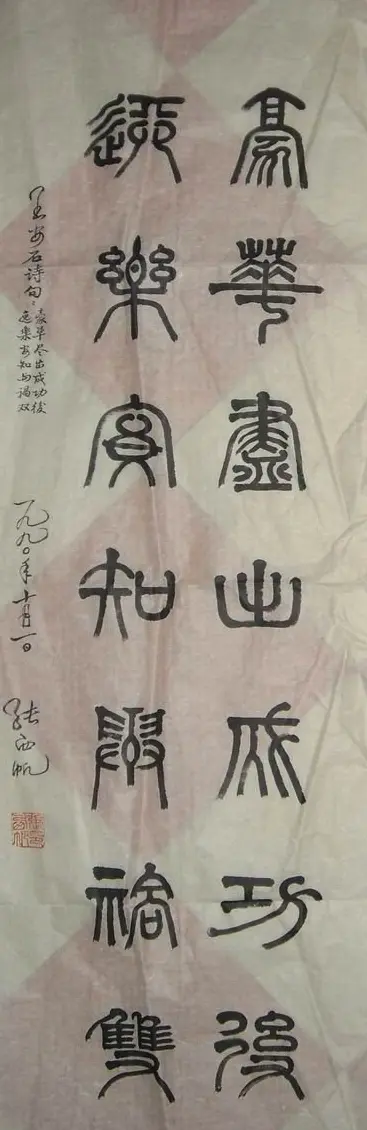 豪華盡出成功後
逸樂安知與禍雙
王安石詩句：
豪华尽出成功後
逸樂安知与禍双
一九九〇年十月一日
张西帆